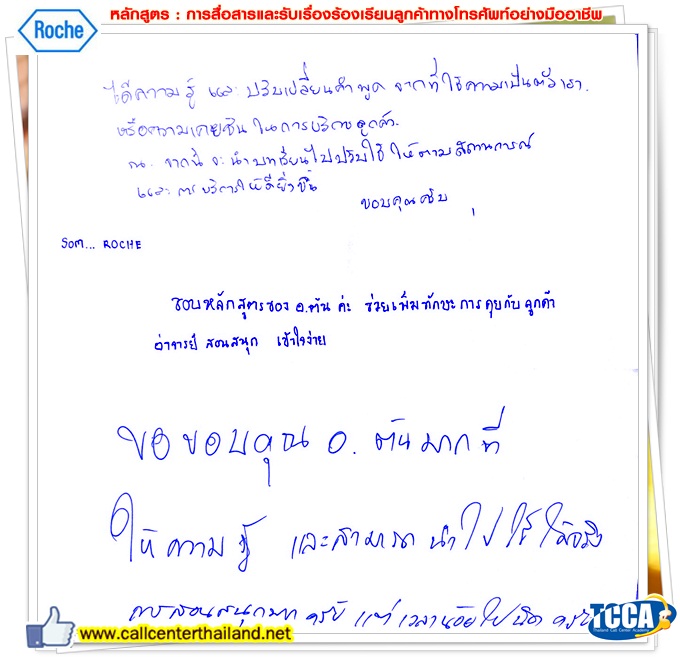 Roche
หลักสูตร : การสื่อสารและรับเรื่องร้องเรียนลูกค้าทางโทรศัพท์อย่างมืออาชีพ
ได้ความรู้ และ ปรับเปลี่ยนคำพูด จากที่ใช้ความเป็นตัวเรา
หรือความเคยชิน ในการบริการลูกค้า
ณ. จากนี้ จะ นำบทเรียนไปปรับใช้ ให้ตามสถานการณ์
และ การบริการให้ดียิ่งขึ้น
ขอบคุณครับ
Som... ROCHE
ชอบหลักสูตรของ อ.ตัน ค่ะ ช่วยเพิ่มทักษะการคุยกับลูกค้า
อาจารย์ สอนสนุก เข้าใจง่าย
ขอขอบคุณ อ. ตันมากที่
ให้ความรู้ และสามารถนำไปใช้ได้จริง
การสอนสนุกมากครับ แต่เวลาน้อยไปนิด ครับ
www.callcenterthailand.net
TCCA
Thailand Call Center Academy